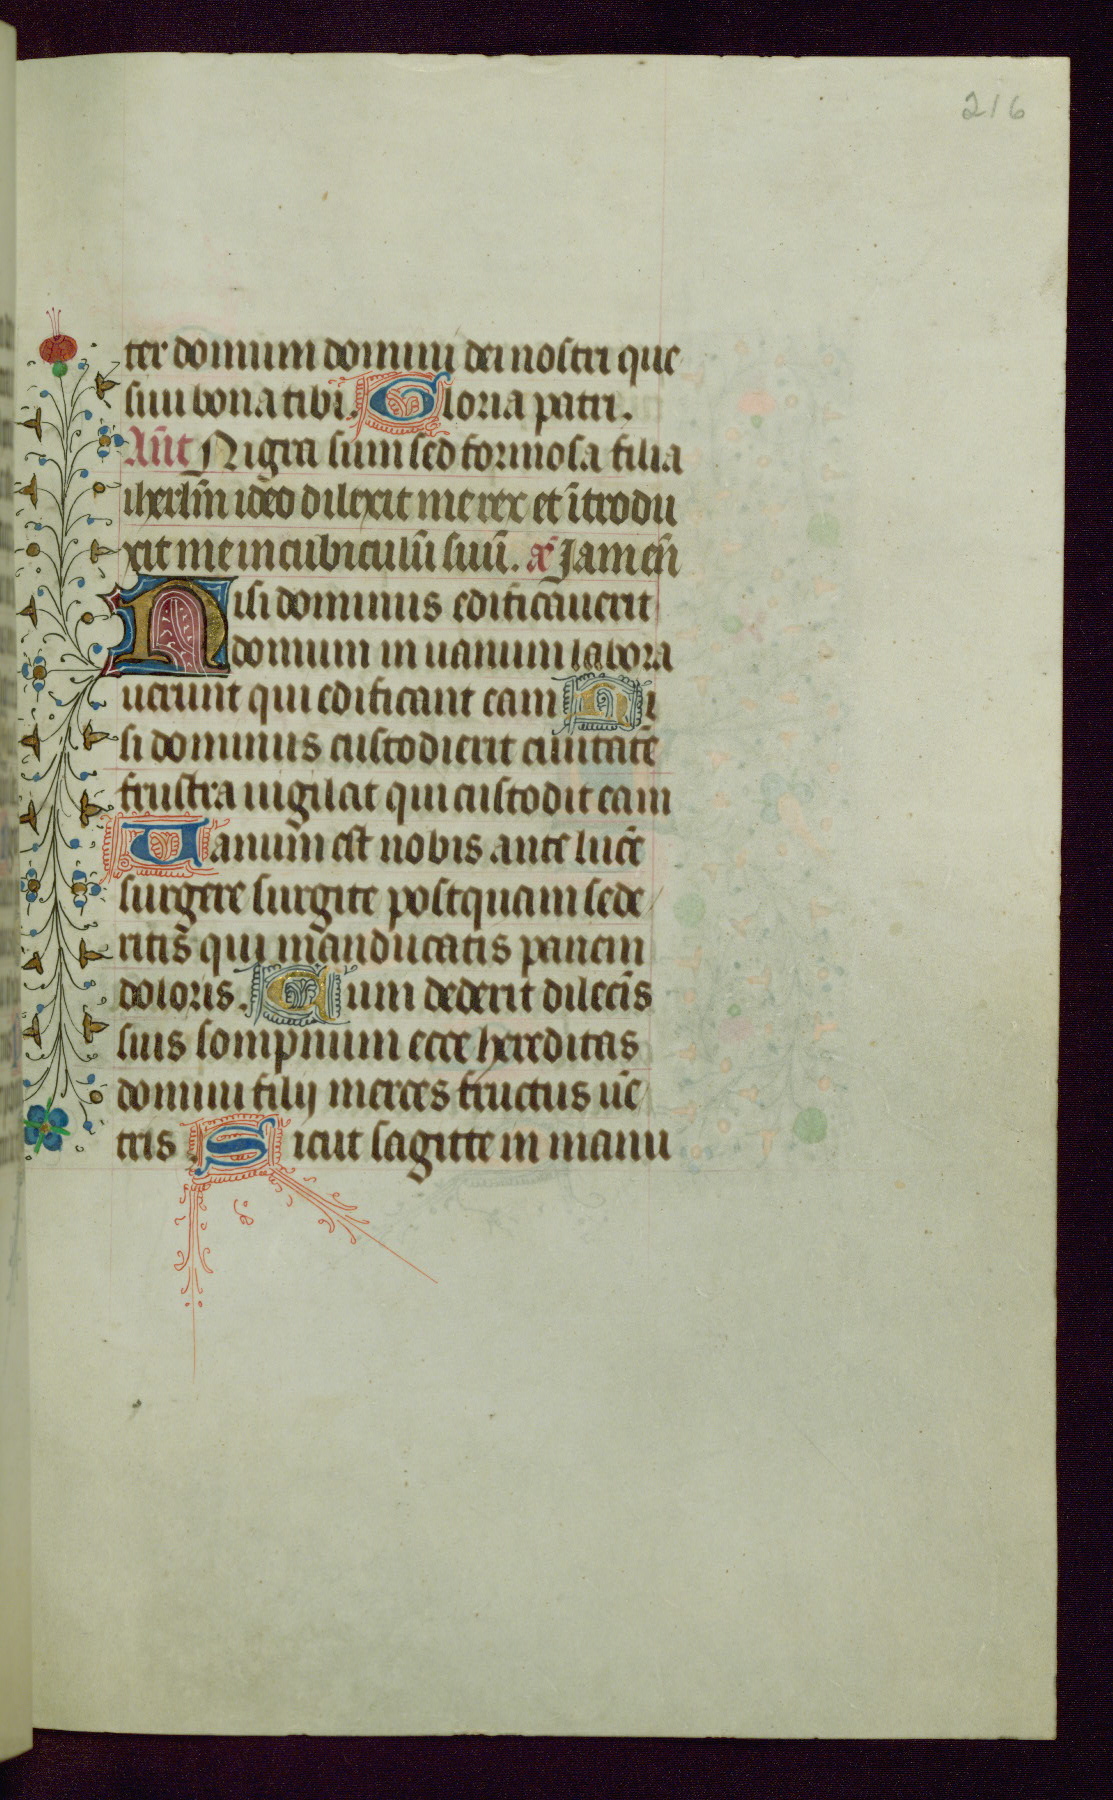 216
ter domum domini dei nostri que
siui bona tibi. Gloria patri.
Añt Nigra sum sed formosa filia
iherlm̄ ideo dilexit me rex et ītrodu
xit me in cubiculū suū. a᷒ Jam em̄
Nisi dominus edificauerit
domum in uanum labora
uerunt qui edificant eam Ni
si dominus custodierit ciuitatē
frustra uigilat qui custodit eam
Uanum est nobis ante lucē
surgere surgite postquam sede
ritis qui manducatis panem
doloris. Cum dederit dilectis
suis sompnum ecce hereditas
domini filij merces fructus uē
tris. Sicut sagitte in manu